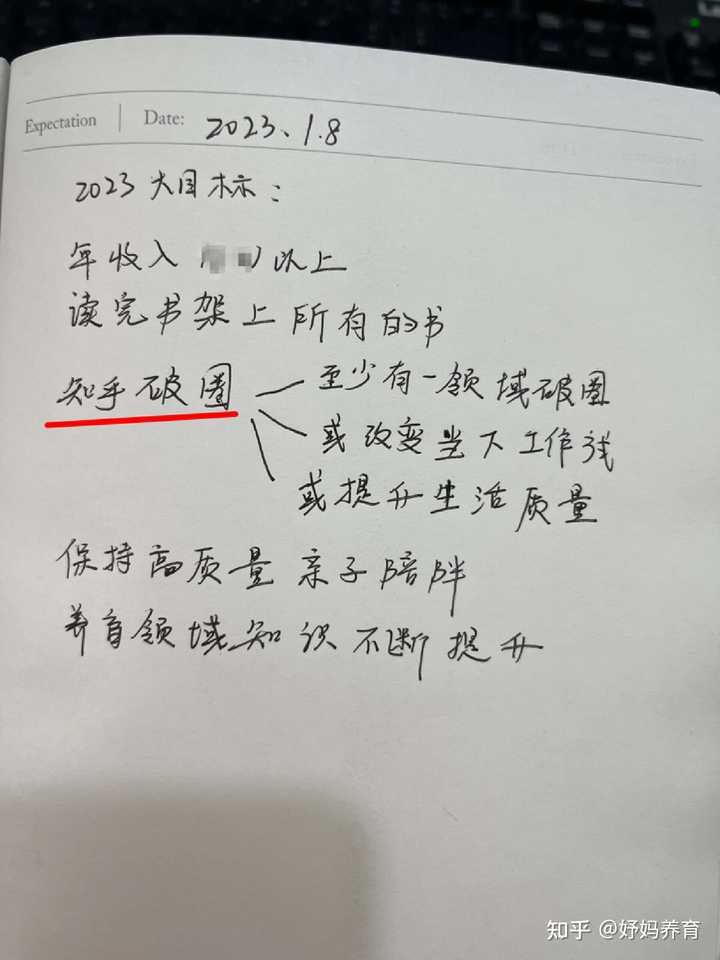 Expectation Date: 2023.1.8
2023大目标：
年收入 以上
读完书架上所有的书
知乎破圈 至少有一领域破圈
或改变当下工作线
或提升生活质量
保持高质量亲子陪伴
养育领域知识不断提升
知乎 @妤妈养育